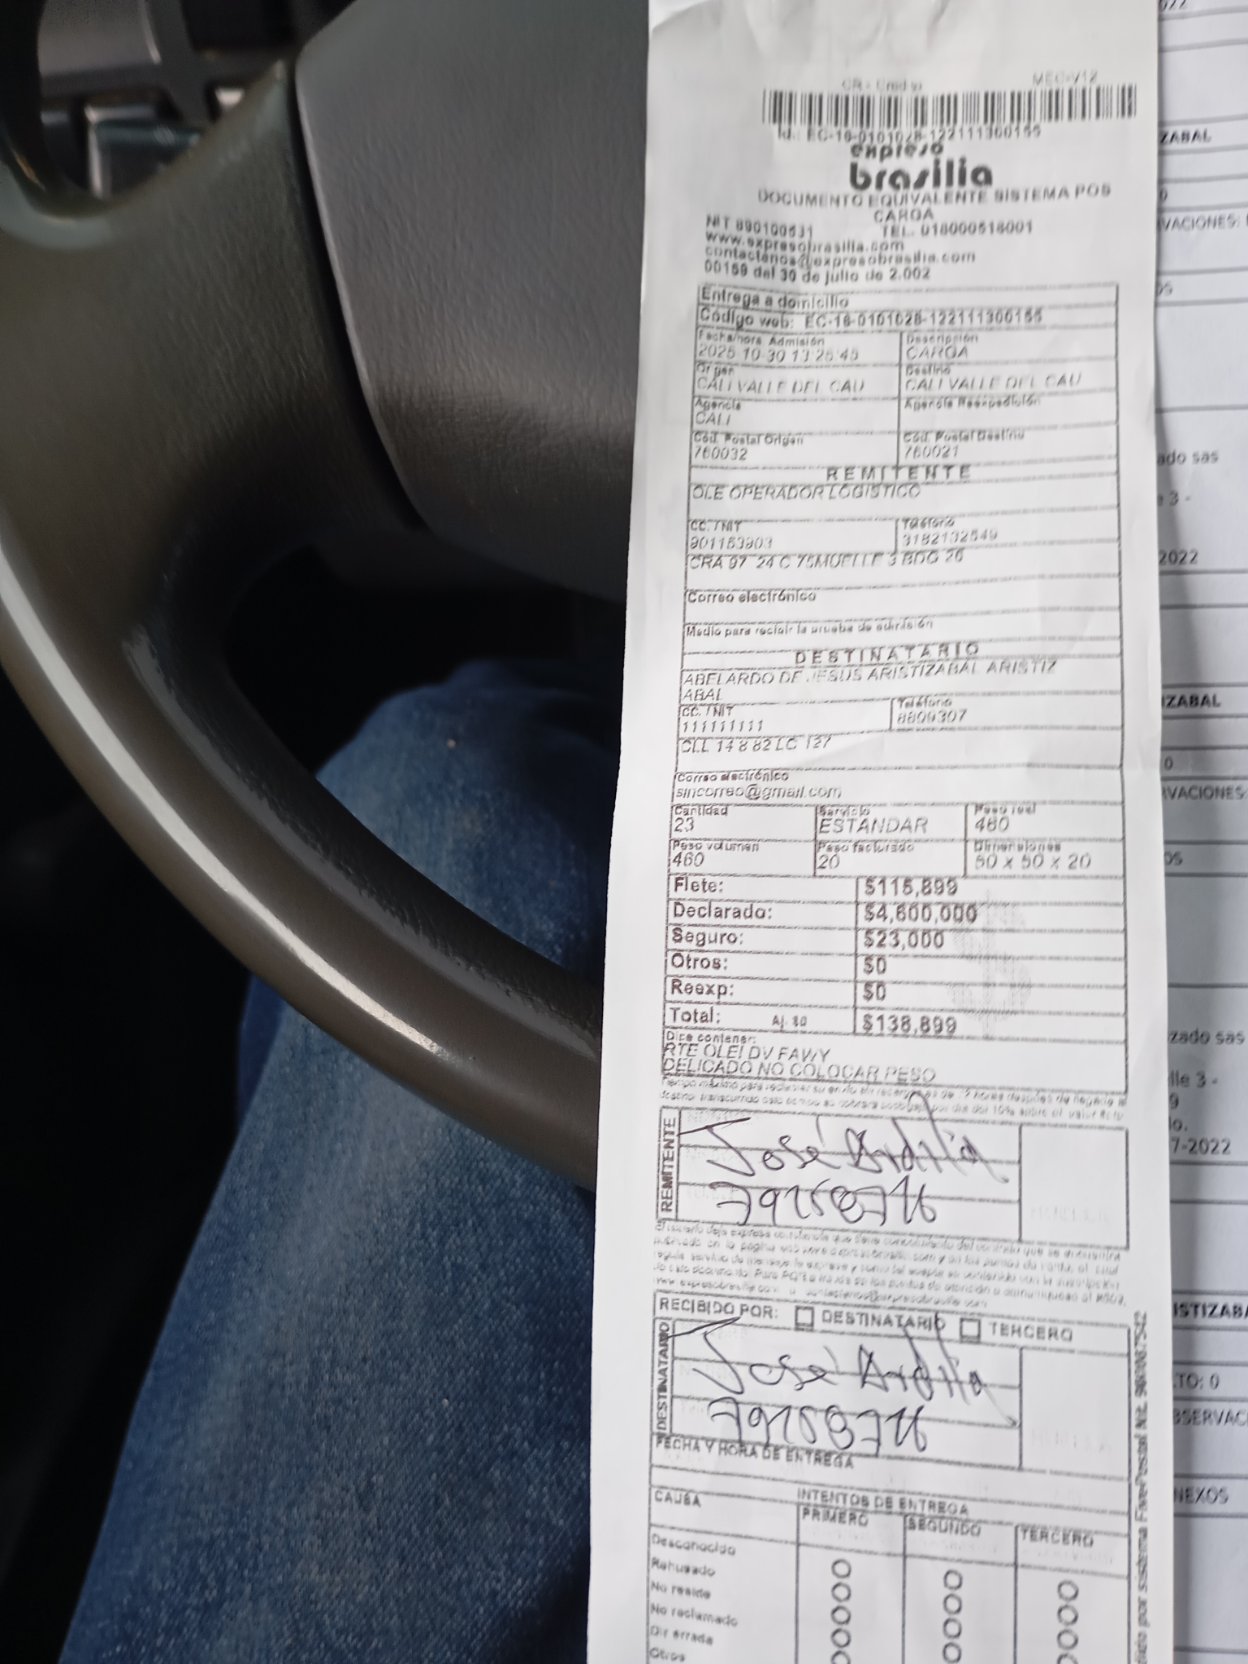 CR - Credito MEC-V12
Id.: EC-16-0101028-122111300155
expreso
brasilia
DOCUMENTO EQUIVALENTE SISTEMA POS
CARGA
NIT 890100531 TEL. 018000518001
www.expresobrasilia.com
contactenos@expresobrasilia.com
00159 del 30 de julio de 2.002
Entrega a domicilio
Código web: EC-16-0101028-122111300155
Fecha/hora Admisión Descripción
2025-10-30 13:25:45 CARGA
Origen Destino
CALI VALLE DEL CAU CALI VALLE DEL CAU
Agencia Agencia Reexpedición
CALI
Cód. Postal Origen Cód. Postal Destino
760032 760021
REMITENTE
OLE OPERADOR LOGISTICO
CC. / NIT Teléfono
901153903 3182132549
CRA 97 24 C 75MUELLE 3 BDG 26
Correo electrónico
Medio para recibir la prueba de admisión
DESTINATARIO
ABELARDO DE JESUS ARISTIZABAL ARISTIZ
ABAL
CC. / NIT Teléfono
111111111 8809307
CLL 14 8 82 LC 127
Correo electrónico
sincorreo@gmail.com
Cantidad Servicio Peso real
23 ESTANDAR 460
Peso volumen Peso facturado Dimensiones
460 20 50 x 50 x 20
Flete: $115,899
Declarado: $4,600,000
Seguro: $23,000
Otros: $0
Reexp: $0
Total: Aj. $0 $138,899
Dice contener:
RTE OLEI DV FAWY
DELICADO NO COLOCAR PESO
REMITENTE
José Ardila
79158716
RECIBIDO POR: DESTINATARIO TERCERO
DESTINATARIO
José Ardila
79158716
FECHA Y HORA DE ENTREGA
CAUSA INTENTOS DE ENTREGA
PRIMERO SEGUNDO TERCERO
Desconocido
Rehusado
No reside
No reclamado
Dir errada
Otros
ZABAL
0
VACIONES:
ado sas
e 3 -
2022
IZABAL
0
RVACIONES:
OS
zado sas
lle 3 -
9
7-2022
ISTIZABA
TO: 0
BSERVAC
NEXOS